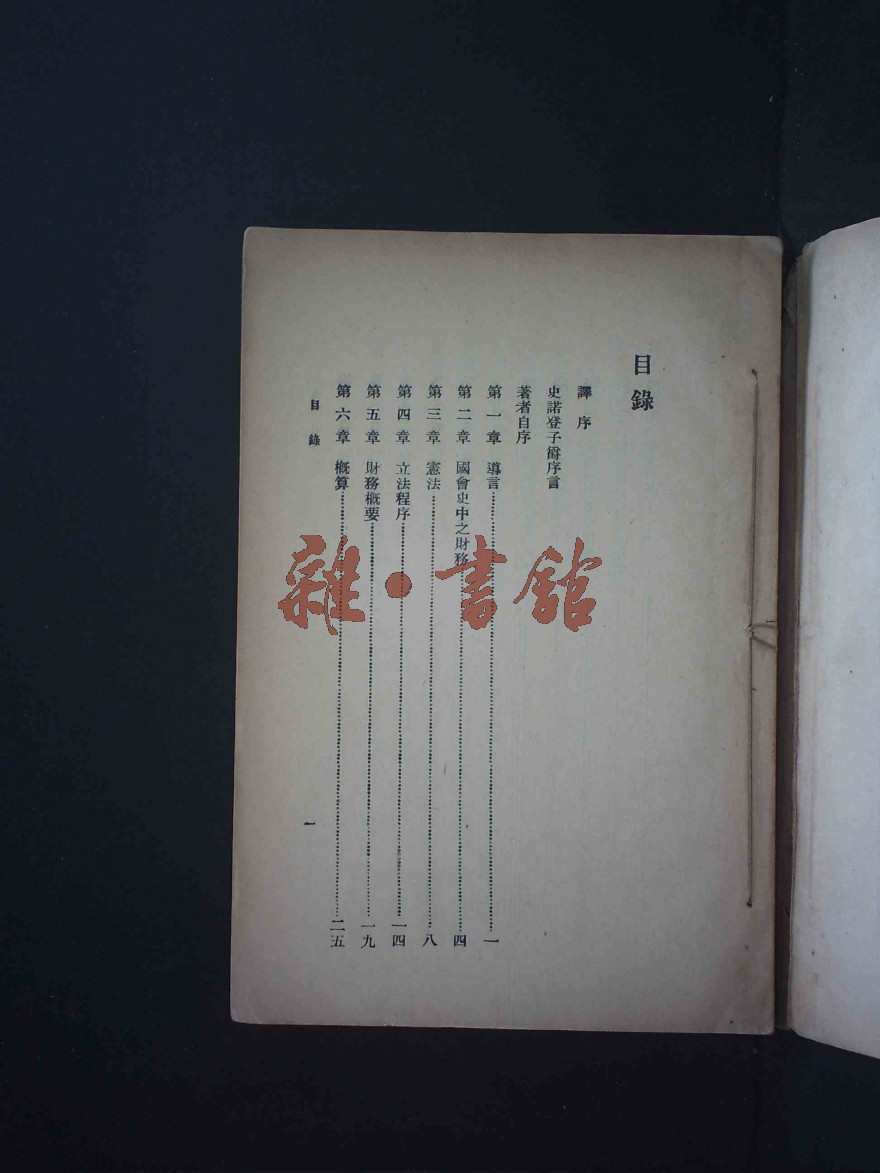 目錄
譯序
史諾登子爵序言
著者自序
第一章 導言……一
第二章 國會史中之財務……四
第三章 憲法……八
第四章 立法程序……一四
第五章 財務概要……一九
第六章 概算……二五
目錄
一
雜·書館